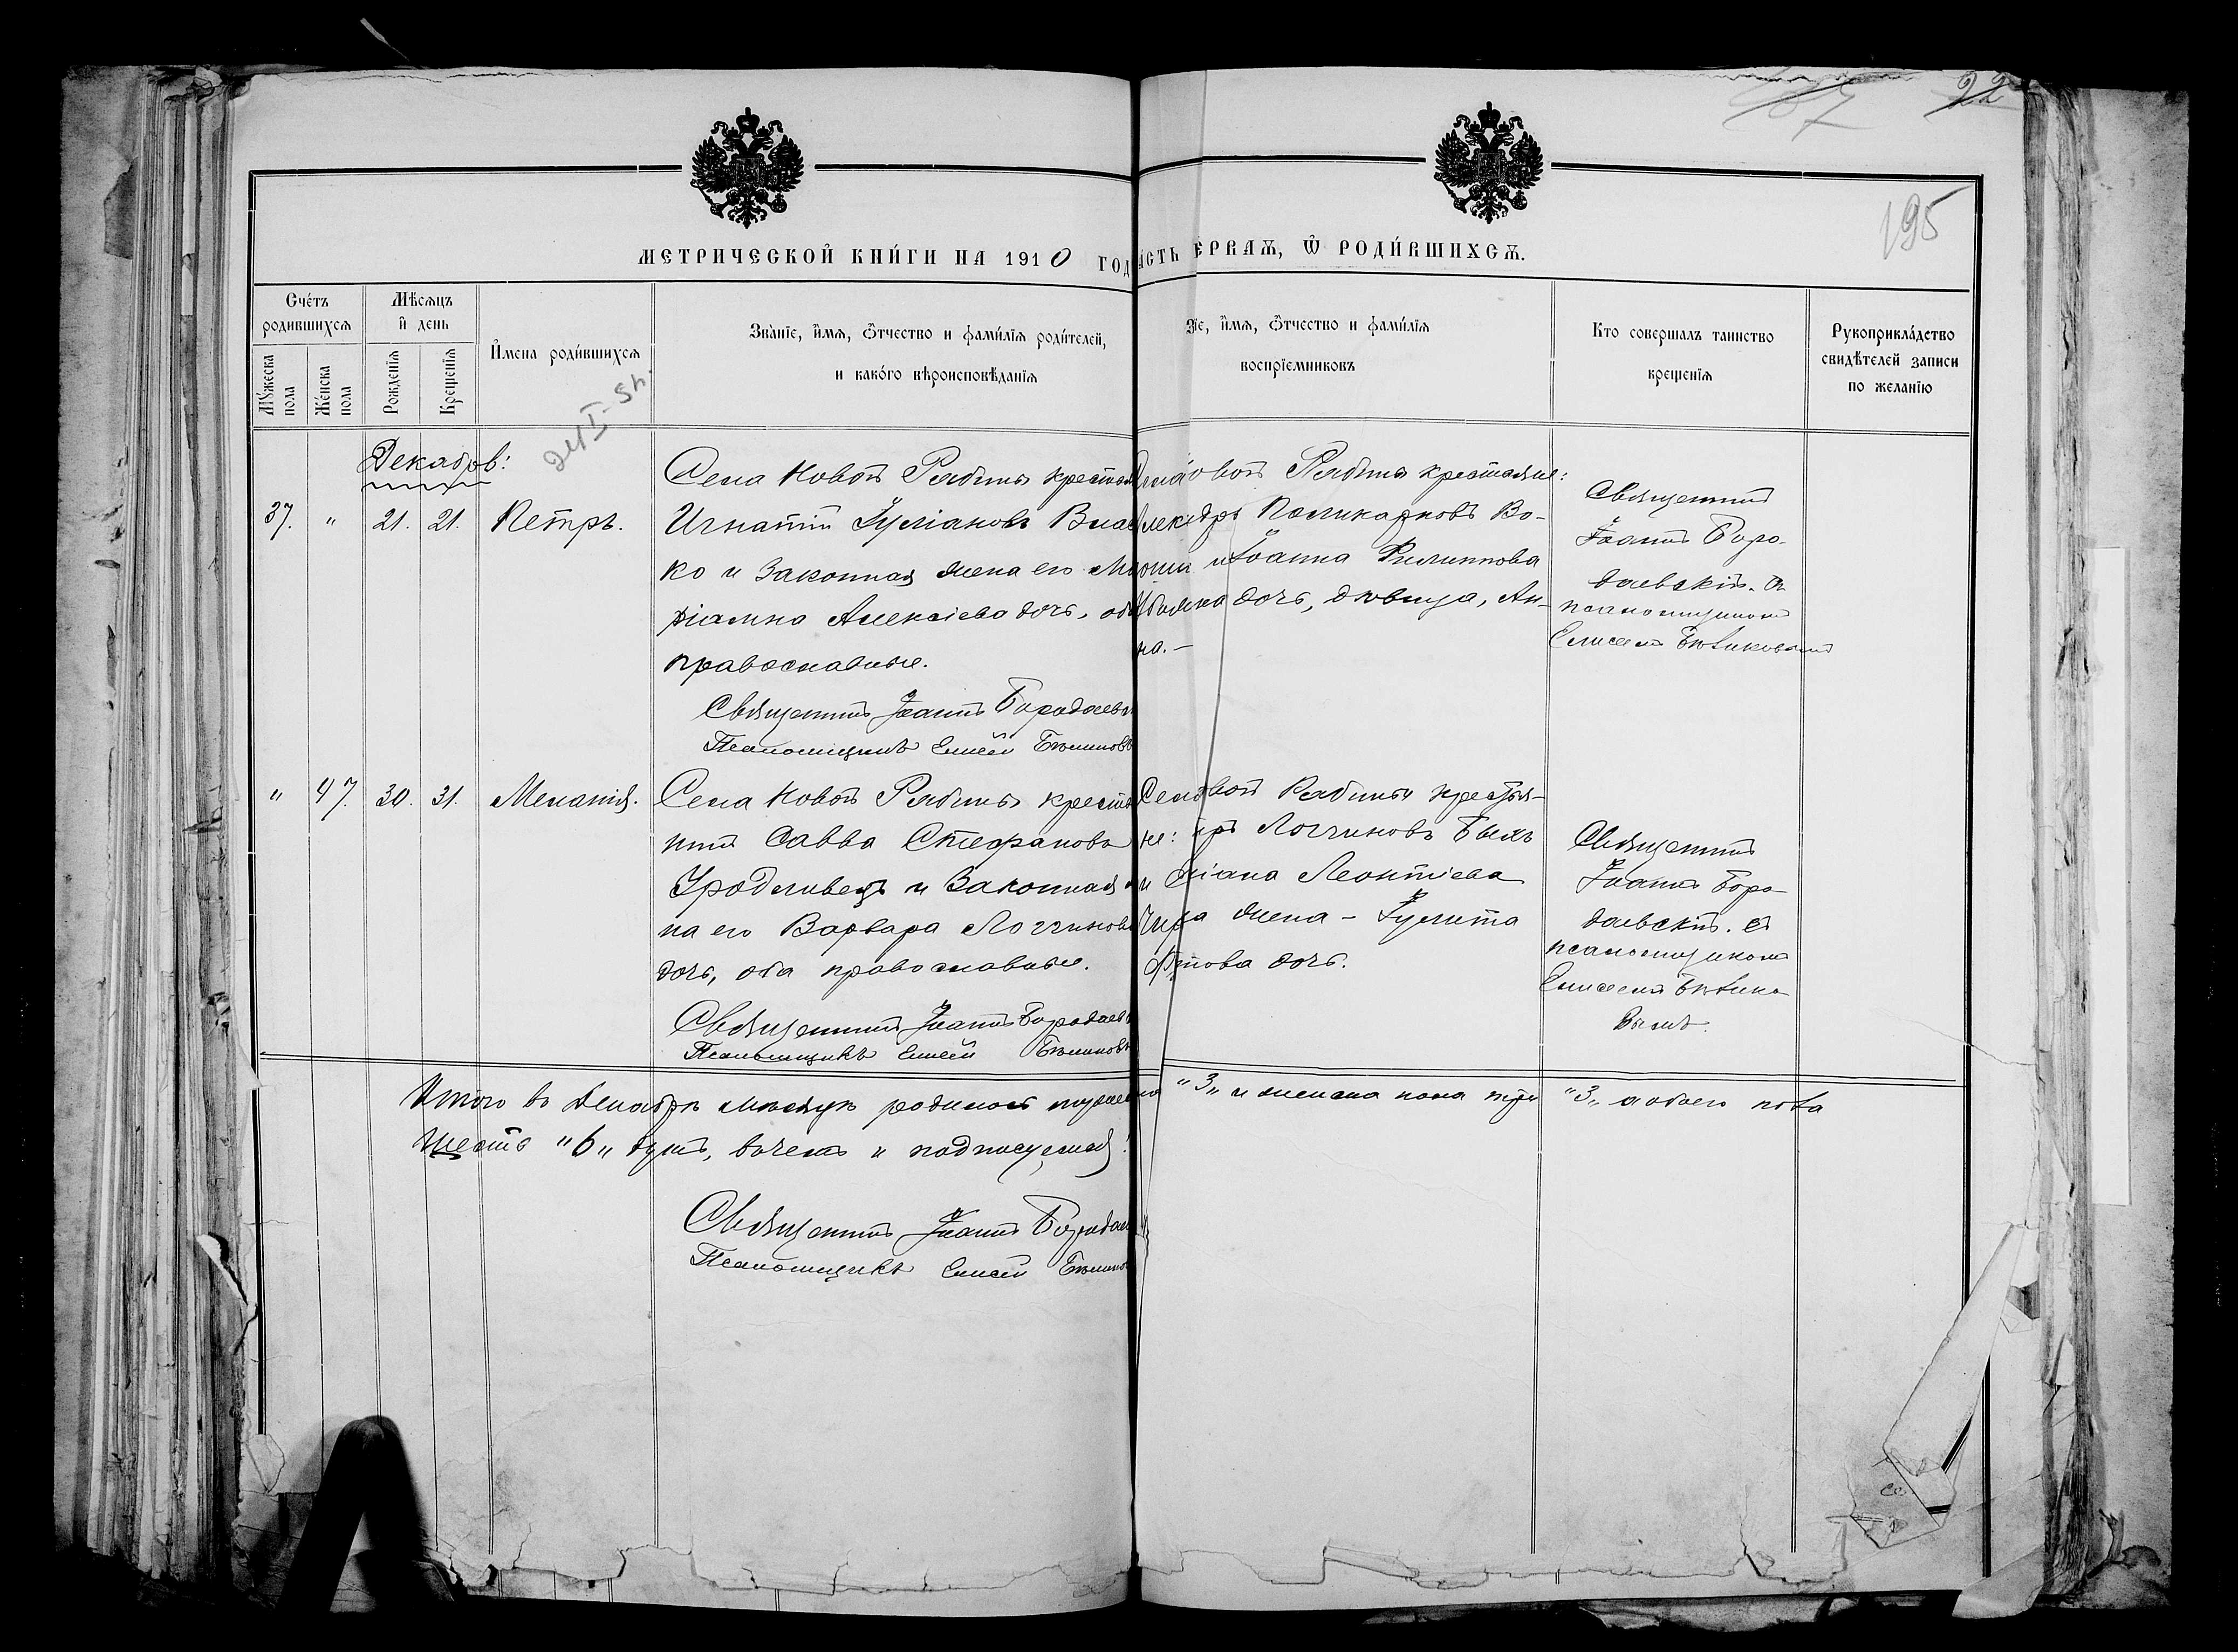 22
195
МЕТРИЧЕСКОЙ КНИ́ГИ НА 1910 ГОД
АСТЬ ЕРВАѦ, Ѡ РОДИ́ВШИХСѦ.
Сче́тъ родившихсѧ
Мѣсѧцъ и день
Мꙋжеска пола
Же́нска пола
Рожденїѧ
Крещенїѧ
И҆мена роди́вшихсѧ
Зва́нїе, и҆́мѧ, ѻ҆́тчество и фами́лїѧ роди́телей,
и како́го вѣроисповѣ́данїѧ
їе, и҆́мѧ, ѻ҆́тчество и фами́лїѧ
воспрїемниковъ
Кто совершалъ таинство
крещенїѧ
Рукоприкла́дство
свидѣтелей записи
по желанїю
Декабрь:
37. " 21. 21. Петръ.
Села Новой Рябины крестья
Игнатій Іуліановъ Влас
ко и законная жена его Ма
ріамна Алексіева дочь, оба
православные.
Священникъ Іоаннъ Бородаевск
Псаломщикъ Елисей Бѣликовъ
Села овой Рябины крестьяне:
лександръ Поликарповъ Во-
и Іоанна Филиппова
дочь, дѣвица, Ан-
на.-
Священникъ
Іоаннъ Боро-
даевскій. съ
псаломщикомъ
Елисеемъ Бѣликовымъ
" 47. 30. 31. Меланія.
Села Новой Рябины крестья
нинъ Савва Стефановъ
Уродливецъ и законная ж
на его Варвара Логгинова
дочь, оба православные.
Священникъ Іоаннъ Бородаев
Псаломщикъ Елисей Бѣликовъ
Села вой Рябины крестья-
не: Логгиновъ Быкъ
и Леонтіева
жена - Іулита
това дочь.
Священникъ
Іоаннъ Боро-
даевскій. съ
псаломщикомъ
Елисеемъ Бѣлико
вымъ.
Итого въ Декабрѣ мѣсяцѣ родилось мужеска "3" и женска пола три "3" а обоего пола
шесть "6" душъ, въ чемъ и подписуемся:
Священникъ Іоаннъ Бородаев
Псаломщикъ Елисей Бѣликов